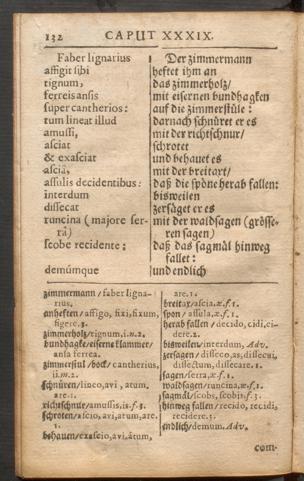 132 CAPUT XXXIX.
Faber lignarius
affigit sibi
tignum,
ferreis ansis
super cantherios:
tum lineat illud
amussi,
asciat
& exasciat
asciâ,
assulis decidentibus:
interdum
dissecat
runcina (majore ser-
râ)
scobe recidente:
demúmque
Der zimmermann
heftet ihm an
das zimmerholz/
mit eisernen bundhagken
auf die zimmerstüle:
darnach schnüret er es
mit der richtschnur/
schrotet
und behauet es
mit der breitaxt/
daß die spöne herab fallen:
bisweilen
zersäget er es
mit der waldsagen (grösse-
ren sagen)
daß das sagmäl hinweg
fallet:
und endlich
zimmermann/faber ligna-
rius,
anheften/affigo, fixi, fixum,
figere.3.
zimmerholz/tignum, i.n.2.
bundhagke/eiserne klammer/
ansa ferrea.
zimmerstül/bock/cantherius,
ii.m.2.
schnüren/lineo, avi, atum.
are.1.
richtschnur/amussis, is.f.3.
schroten/ascio, avi, atum, are.
1.
behauen/exascio, avi, átum,
are.1.
breitax/ascia.æ.f.1.
spon/assula.æ.f.1.
herab fallen/decido, cidi, ci-
dere.2.
bisweilen/interdum, Adv.
zersagen/disseco, as, dissecui,
dissectum, dissecare.1.
sagen/serra, æ.f.1.
waldsagen/runcina, æ.f.1.
sagmäl/scobs, scobis.f.3.
hinweg fallen/recido, recidi,
recidere.3.
endlich/demum. Adv.
com-